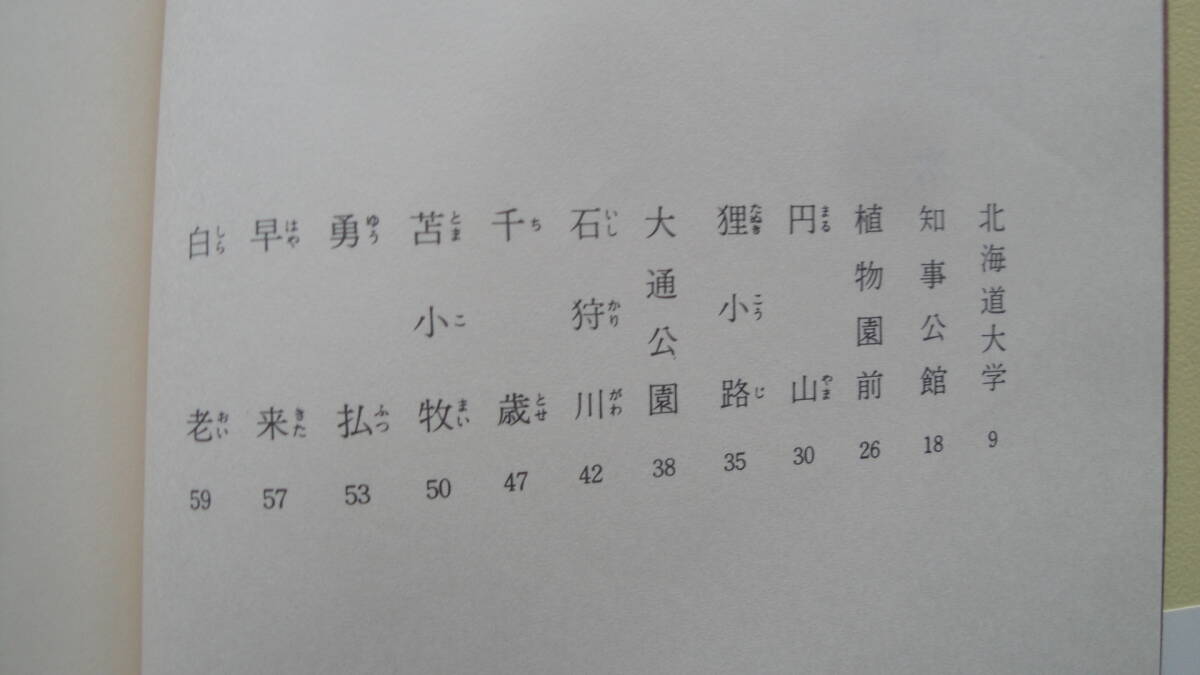 北海道大学 9
知事公館 18
植物園前 26
円まる山やま 30
狸たぬき小こう路じ 35
大通公園 38
石いし狩かり川がわ 42
千ち歳とせ 47
苫とま小こ牧まい 50
勇ゆう払ふつ 53
早はや来きた 57
白しら老おい 59